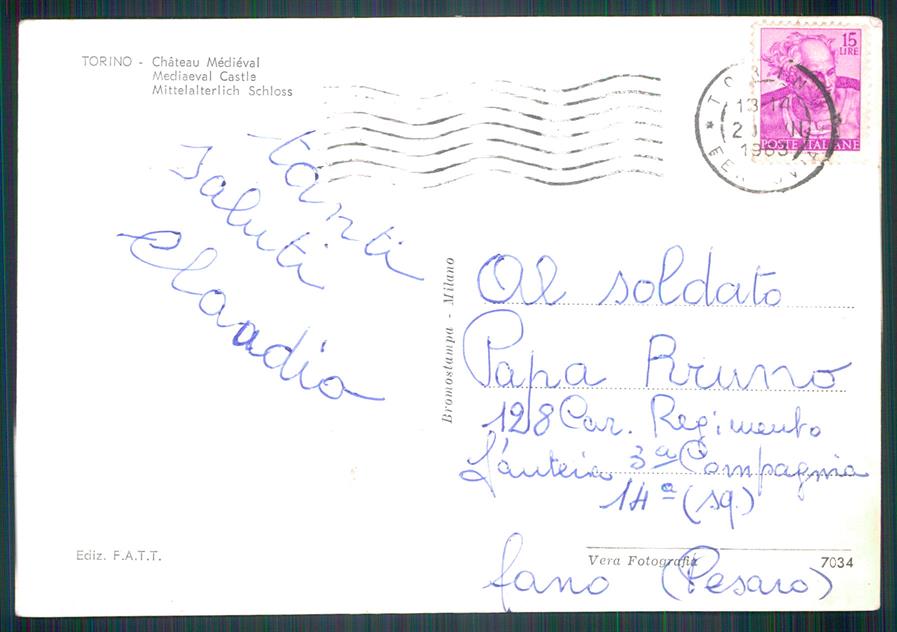 TORINO - Château Médiéval
Mediaeval Castle
Mittelalterlich Schloss
15
LIRE
POSTE ITALIANE
13-14
1963
Tanti
Saluti
Claudio
Bromostampa - Milano
Al soldato
Papa Bruno
128 Car. Regimento
3ª Compagnia
14ª (sq.)
fano (Pesaro)
Ediz. F.A.T.T.
Vera Fotografia
7034